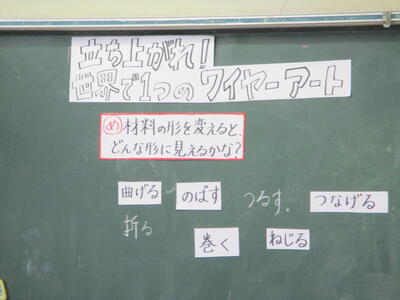 立ち上がれ!
世界で1つの ワイヤーアート
め 材料の形を変えると、
どんな形に見えるかな?
曲げる のばす つるす。 つなげる
折る 巻く ねじる